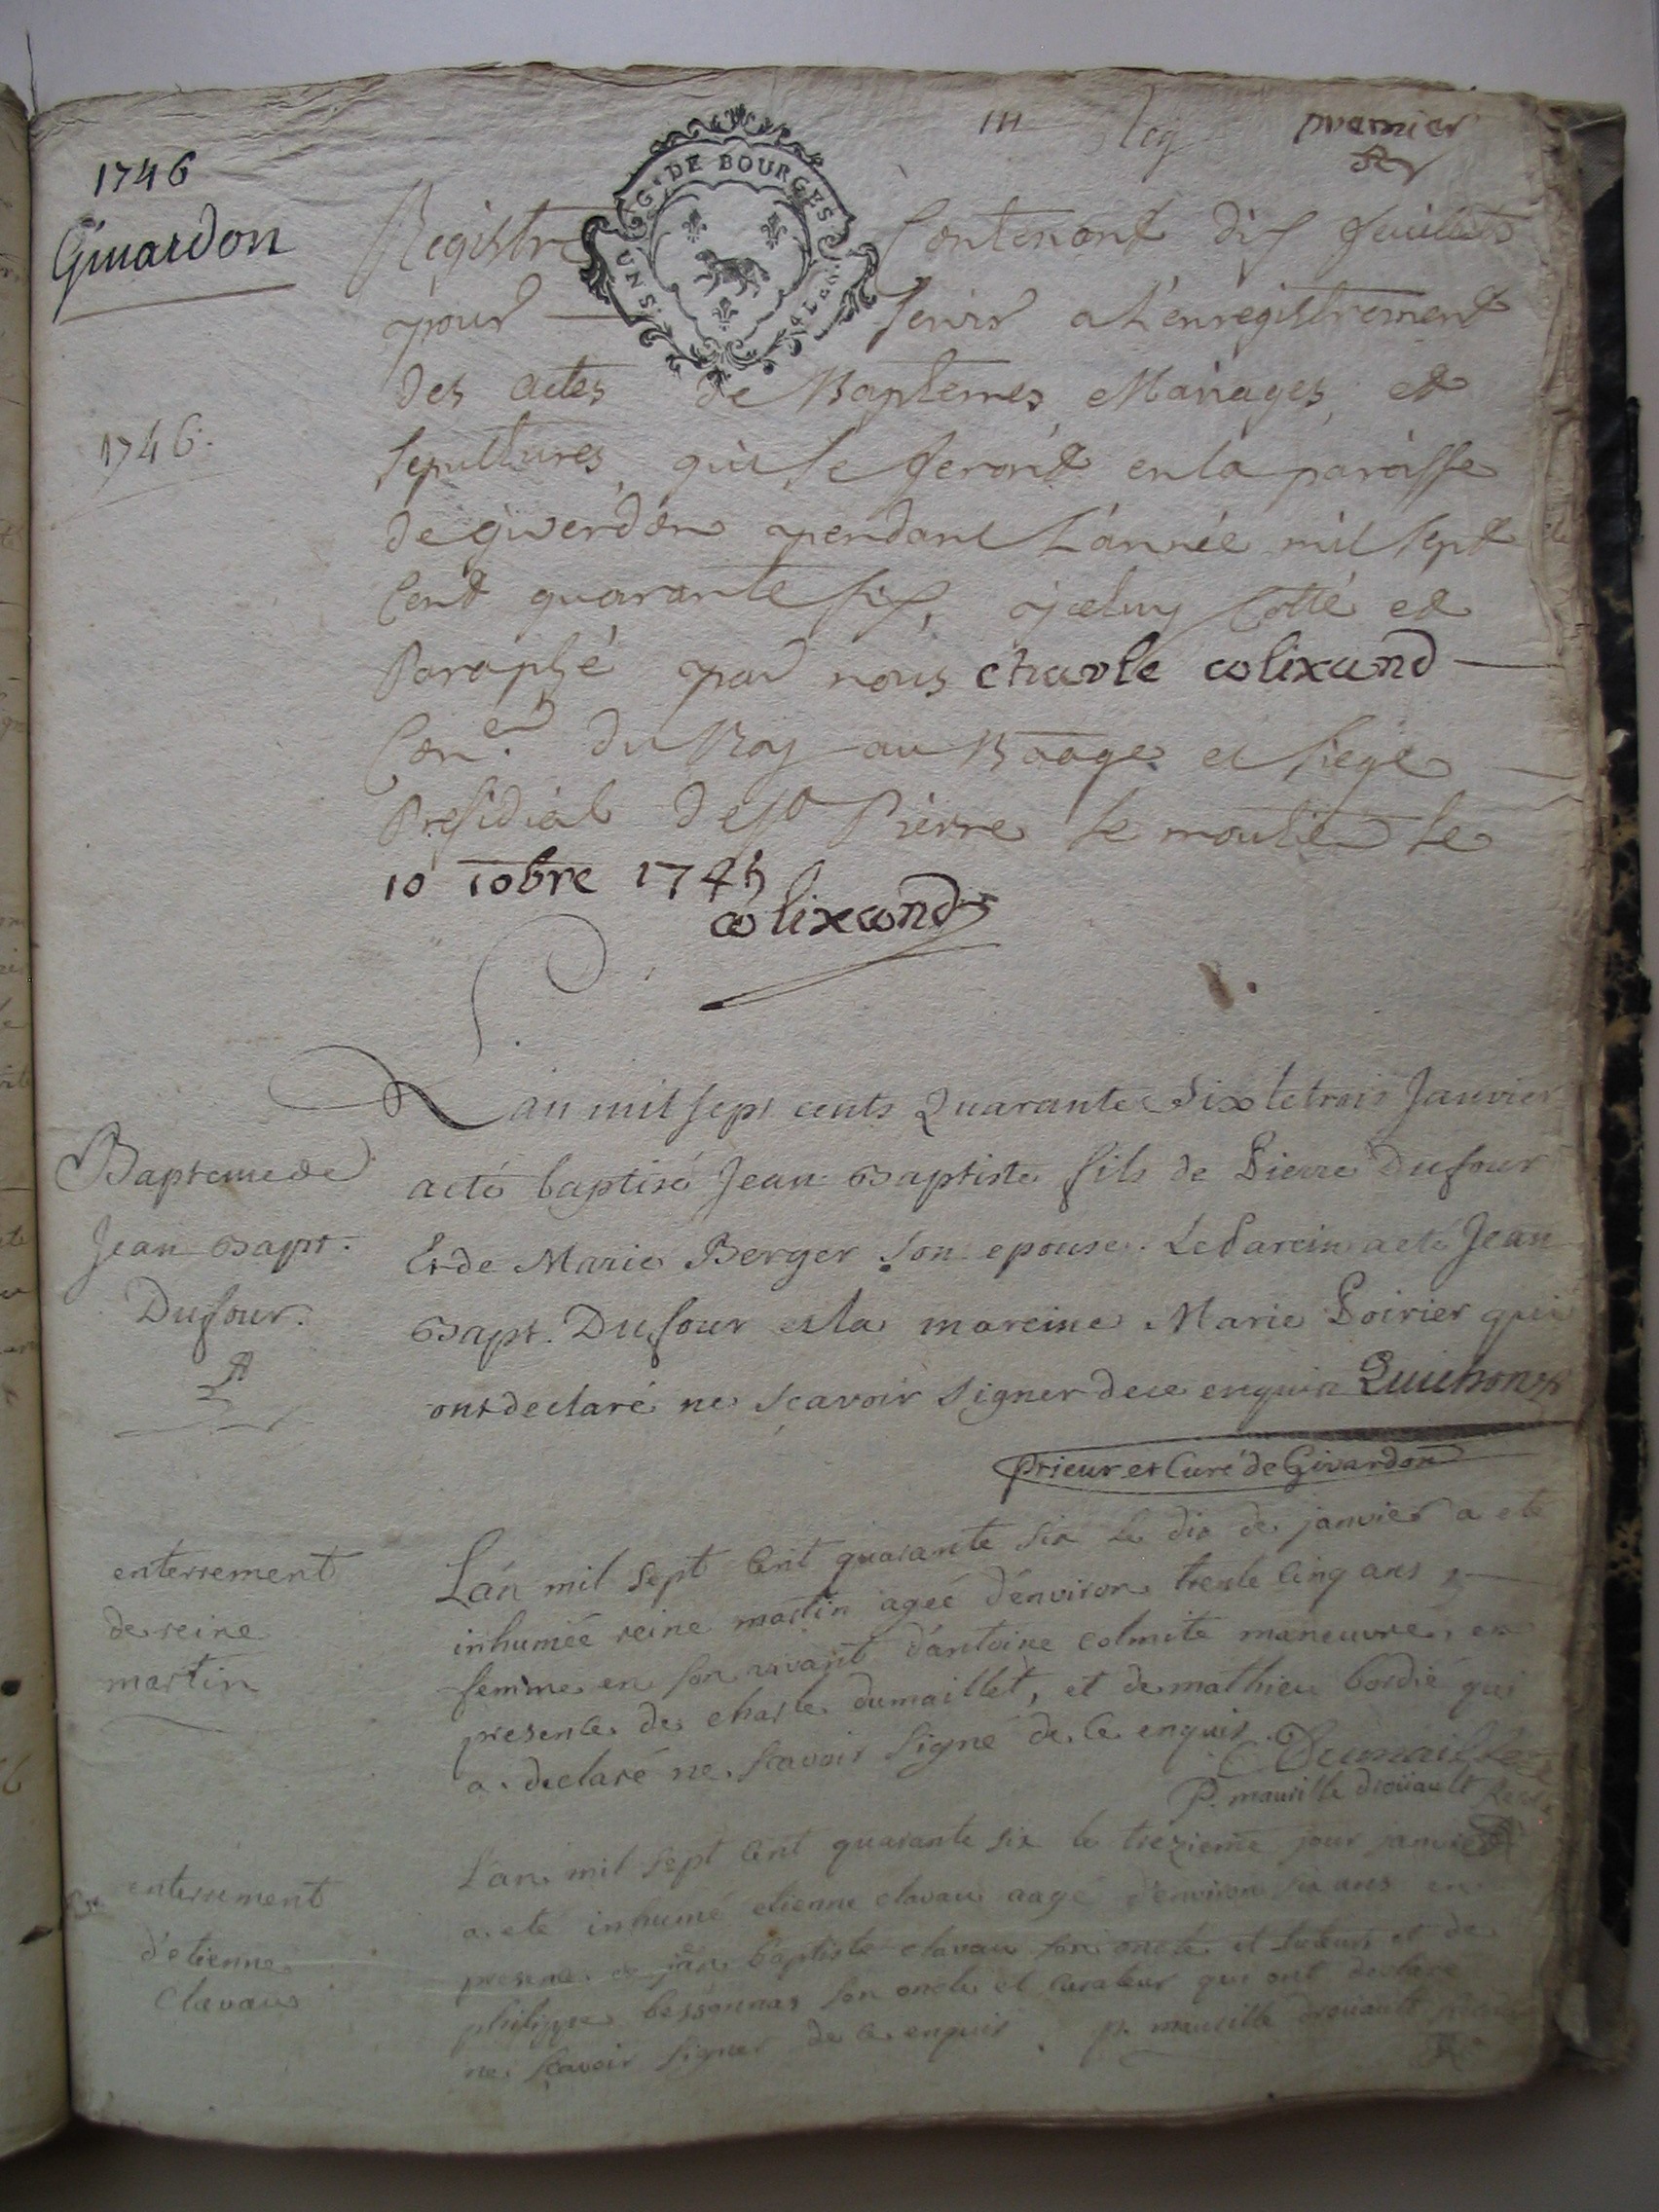 premier
1746
Givardon
GG DE BOURGES
Registre Contenant dix feuillets
pour servir a L'enregistrement
des actes de Baptemes Mariages et
1746.
sepultures qui se feront en la paroisse
de giverdon pendant L'année mil sept
Cent quarante six, iceluy Cotté et
Paraphé par nous charle colixand
Con.er du Roy au Baage et siege
Presidial de st Pierre le moutier le
10 10bre 1745
colixand
Lan mil sept cents Quarante Six le trois Janvier
Bapteme de
acté baptisé Jean Baptiste fils de Pierre Dufour
Jean Bapt.
Et de Marie Berger son epouse. Le Parein acté Jean
Dufour.
Bapt. Dufour et la mareine Marie Poirier qui
ont declaré ne scavoir signer de ce enquis Quichon
Prieur et Curé de Givardon
Lán mil sept Cent quarante six Le dix de janvier a eté
enterrement
inhumée reine martin agée d'environ trente Cinq ans
de reine
femme en son vivant d'antoine colmite maneuvre, en
martin
presence de charle dumaillet, et de mathieu bordié qui
a declaré ne scavoir signé de ce enquis
C Dumaillet
P. maurille droüault
L'an mil sept Cent quarante six le trezieme jour janvier
enterrement
a eté inhumé etienne clavau aagé d'environ six ans en
d'etienne
presence de jean baptiste clavau son oncle et tuteur et de
Clavau
philippe bessonnas son oncle et curateur qui ont declaré
ne scavoir signer de ce enquis. p. maurille droüault